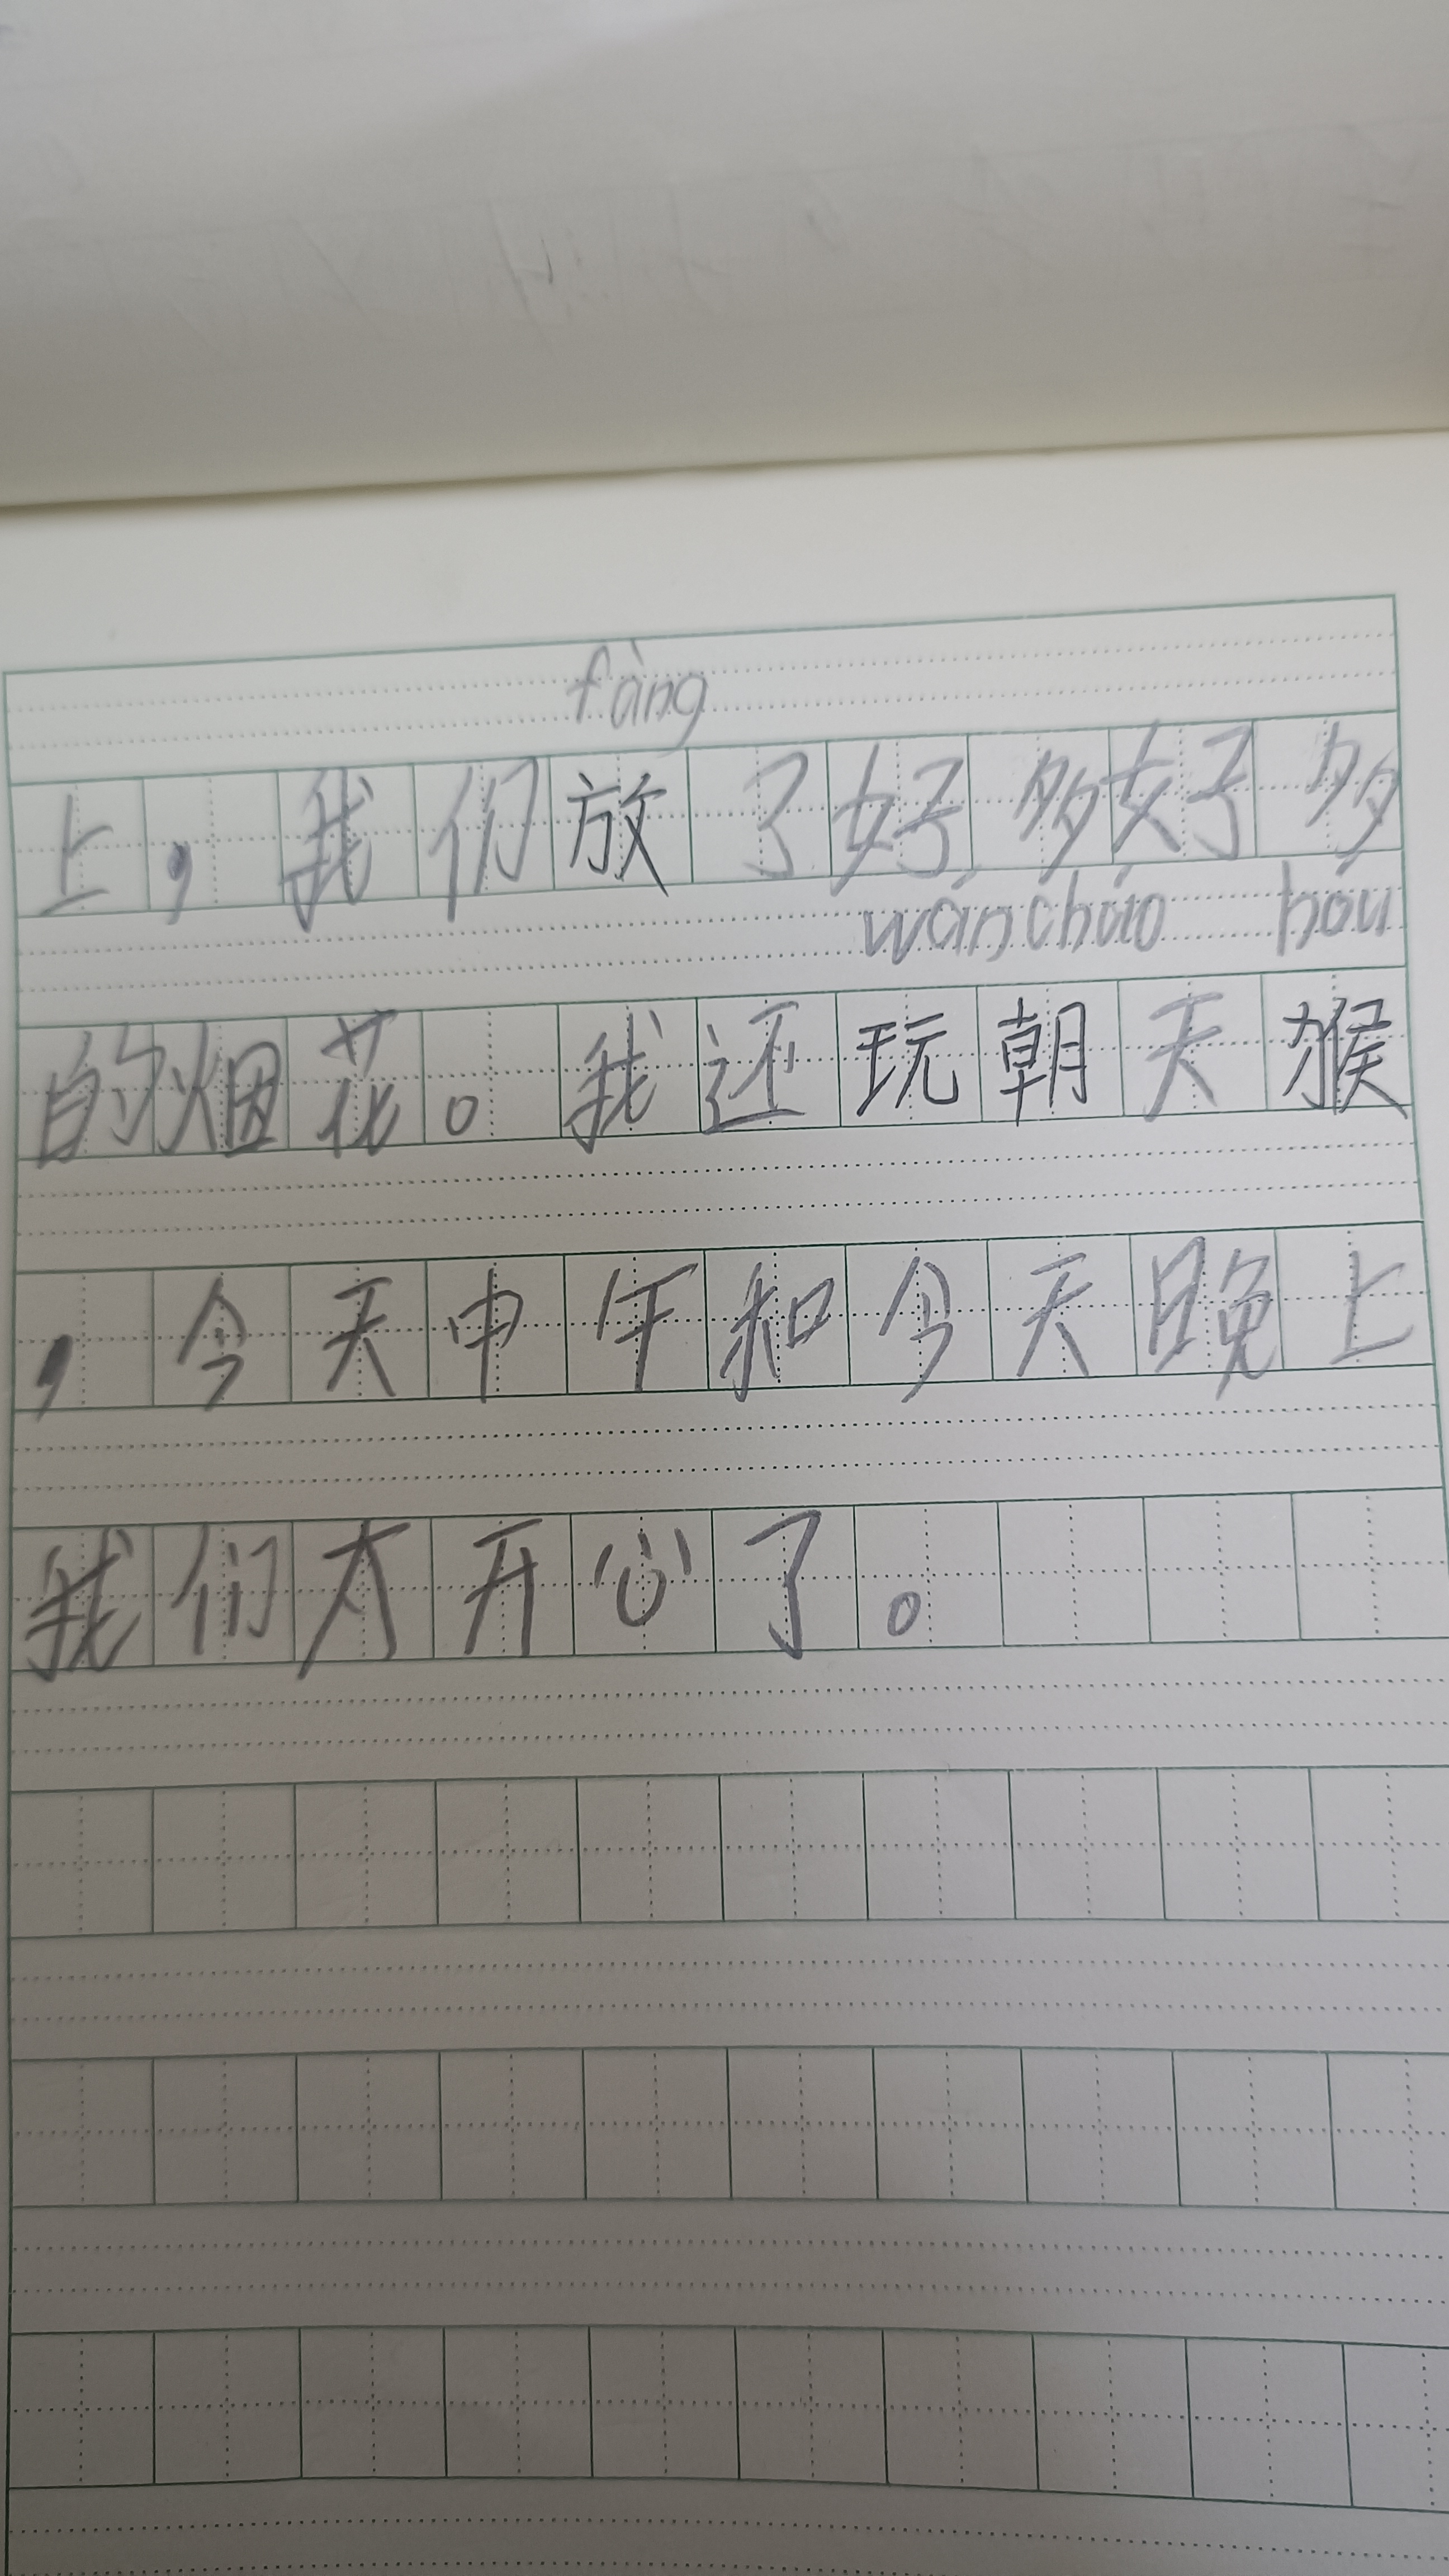 fàng
上，我们放了好多好多
wán cháo hóu
的烟花。我还玩朝天猴
，今天中午和今天晚上
我们太开心了。